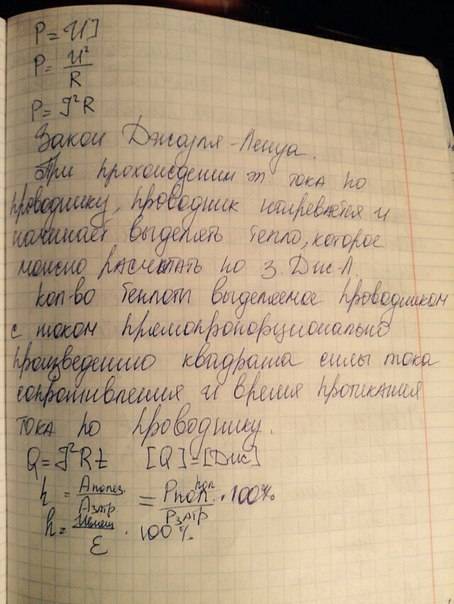 P = UJ
P = U²/R
P = J²R
Закон Джоуля-Ленца.
При прохождении эл тока по
проводнику, проводник нагревается и
начинает выделять тепло, которое
можно расчетать по з. Дж-Л.
Кол-во теплоты выделяемое проводником
с током прямопропорционально
произведению квадрата силы тока
сопротивления и время протикания
тока по проводнику.
Q = J²Rt [Q] = [Дж]
h = Aполез/Aзатр = Pпол/Pзатр · 100%
h = /ε · 100%